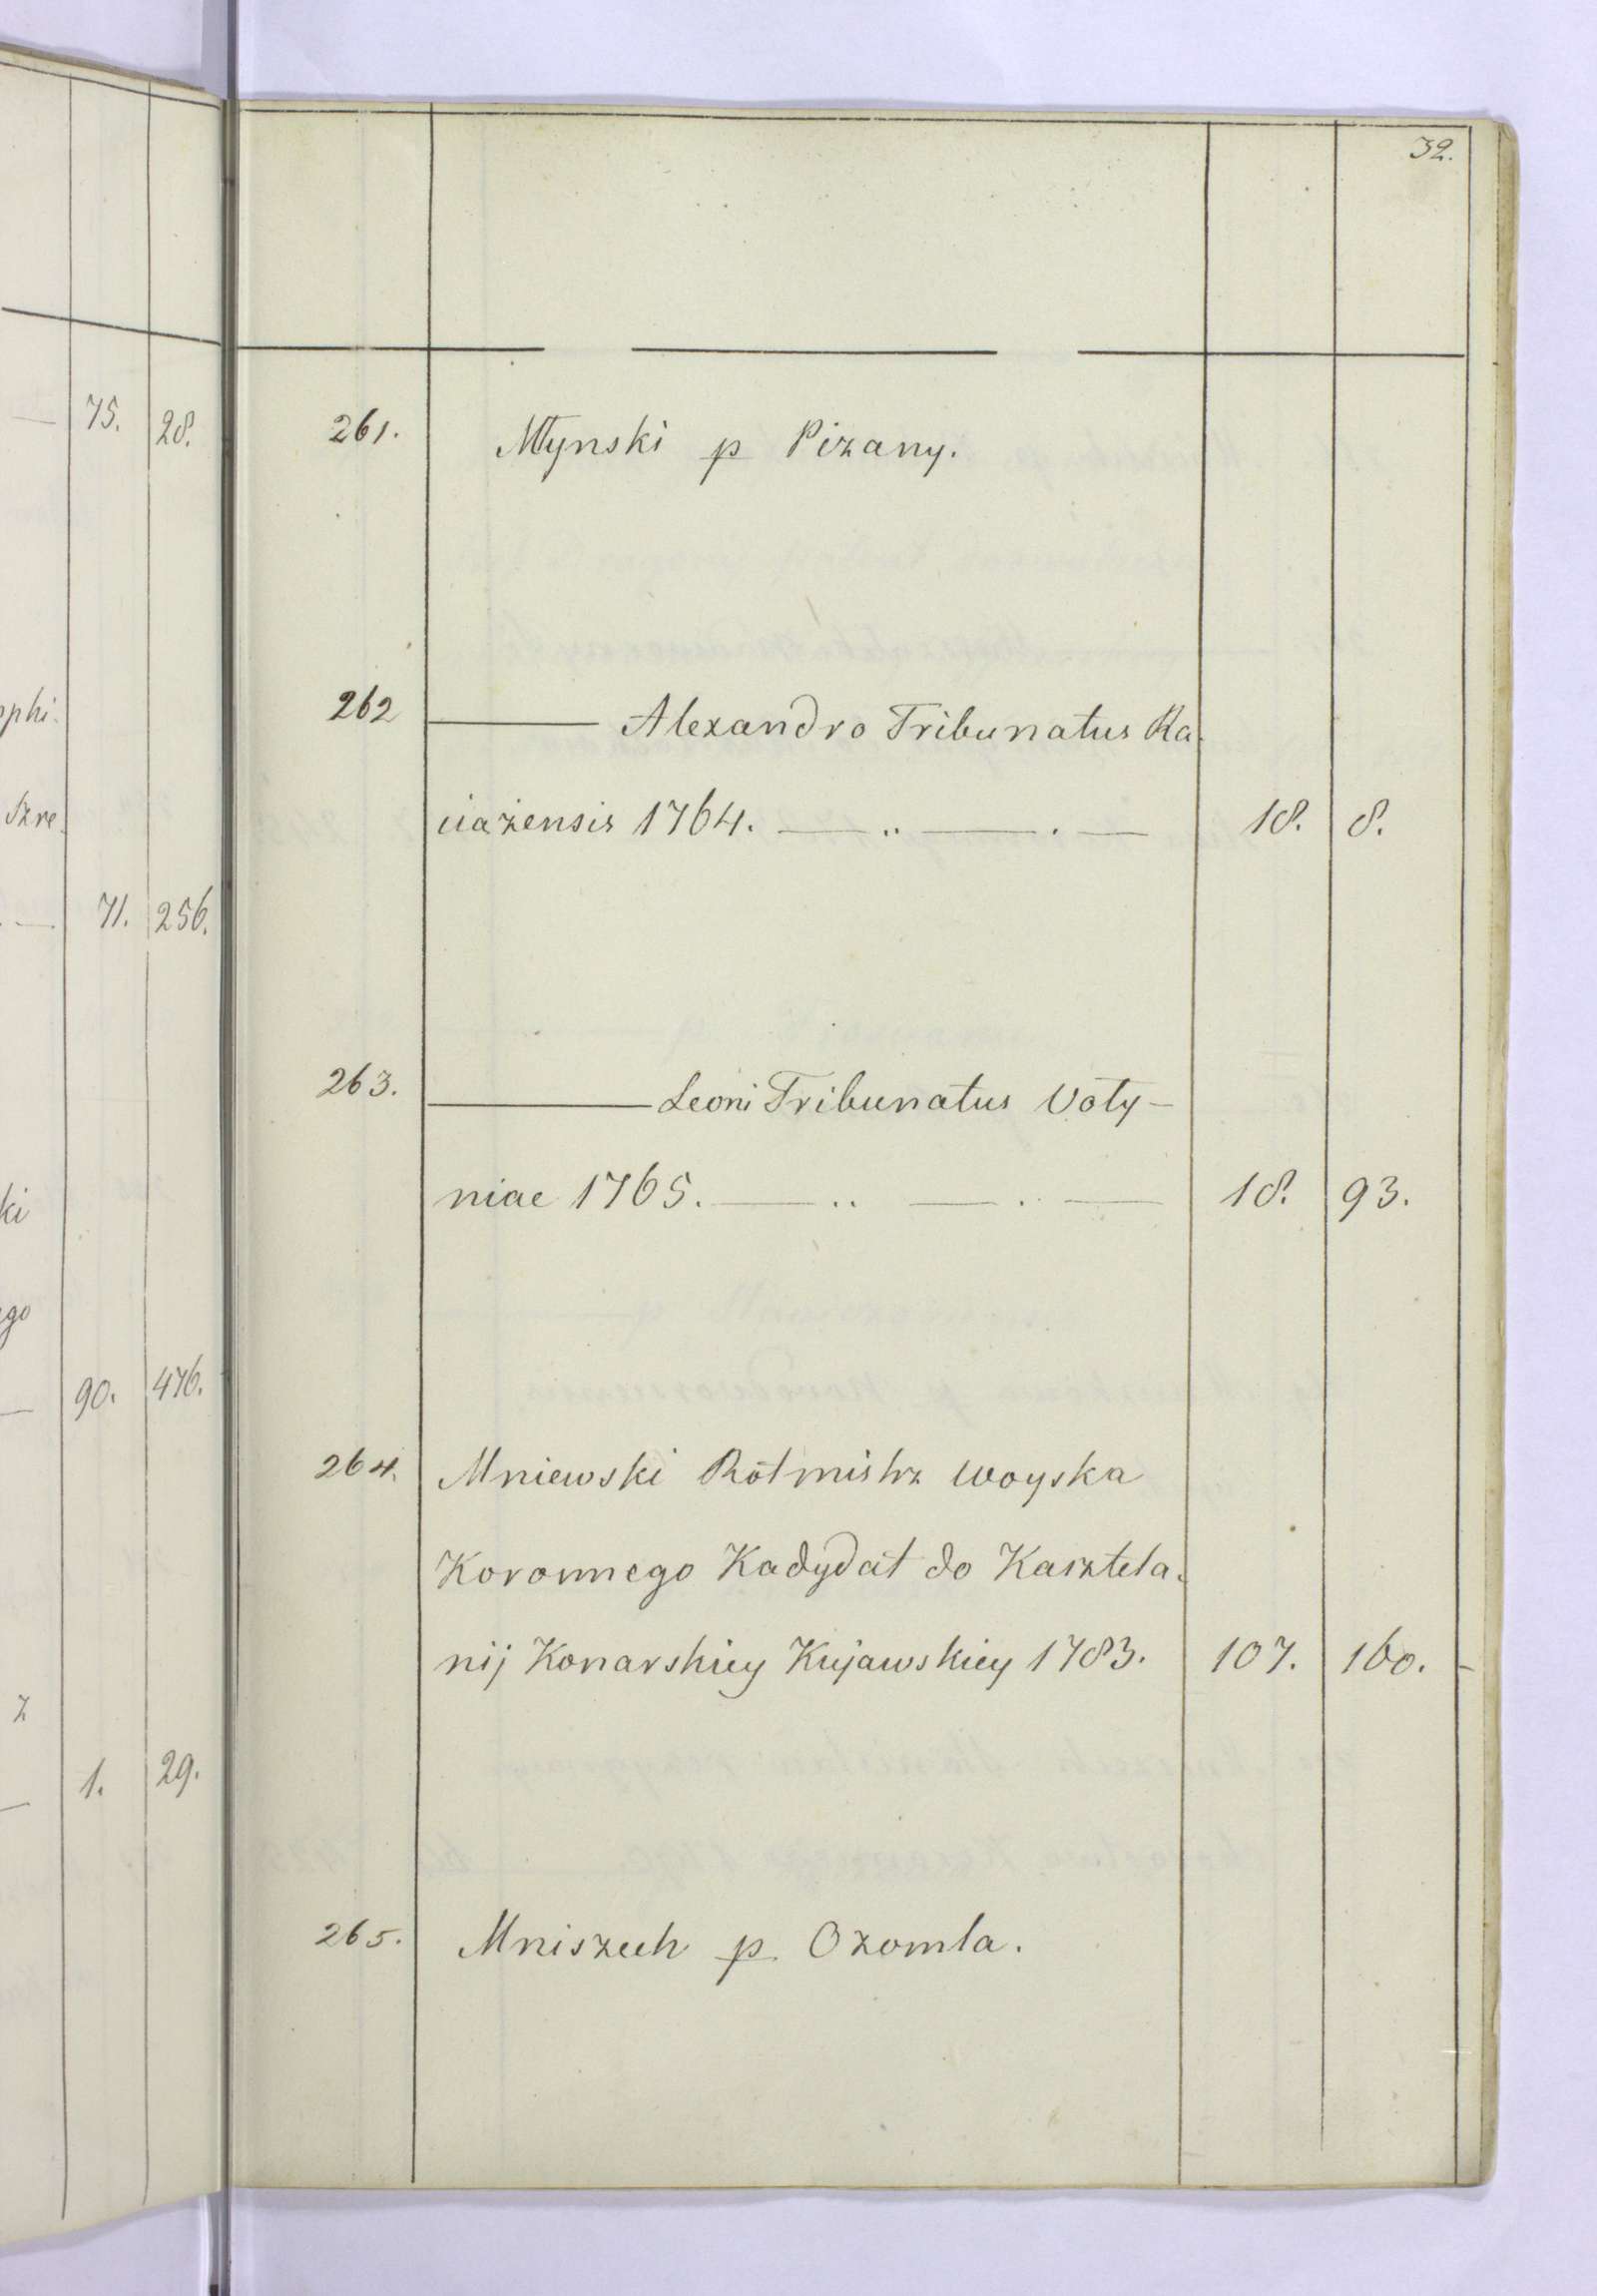 32.
75. 28.
phi.
Szre
71. 256.
ki
ego
90. 476.
z
1. 29.
261. Młynski p Pizany.
262 ——— Alexandro Tribunatus Ra
ciażensis 1764. — .. — . — 18. 8.
263. ——— Leoni Tribunatus Voły-
niae 1765. — .. — .. — 18. 93.
264. Mniewski Rotmistrz woyska
Koronnego Kadydat do Kasztela.
nij Konarskiey Kujawskiey 1783. 107. 160.
265. Mniszech p Ozomla.